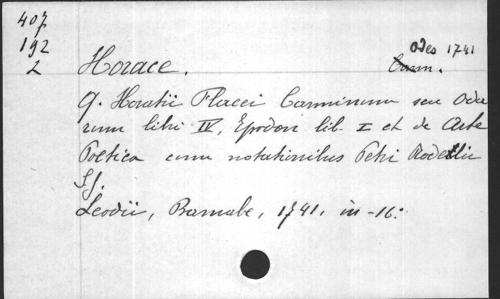 407
192
2
Horace.
Odes 1741
Carm.
Q. Horatii Flacci Carminum seu Oda
rum libri IV, Epodon lib. I et de Arte
Poetica cum notationibus Petri Rodellii
S.J.
Leodii, Barnabe, 1741. in-16: